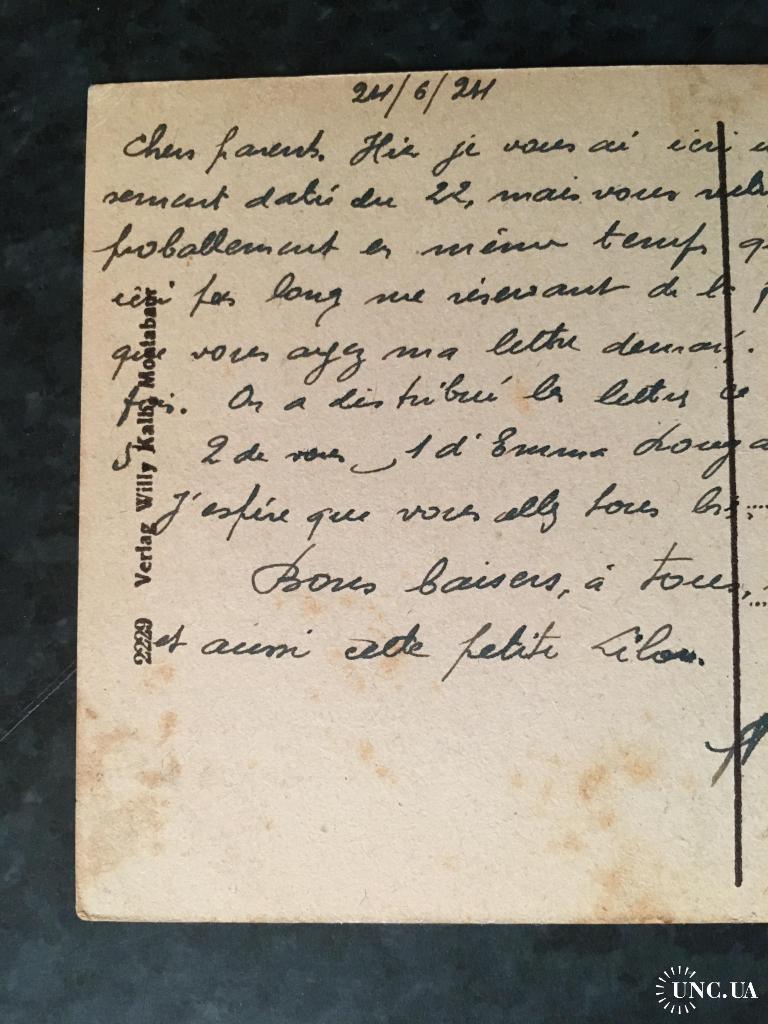 24/6/24
Chers parents. Hier je vous ai écri
sement daté du 22, mais vous
proballement en même temps
écri pas long me réservant de le
que vous ayez ma lettre demain.
fois. On a distribué les lettres ce
2 de vous, 1 d'Emma
J'espère que vous allez tous
Bons baisers, à tous,
et aussi cette petite Lilou.
2229 Verlag Willy Kalb, Montabaur
UNC.UA